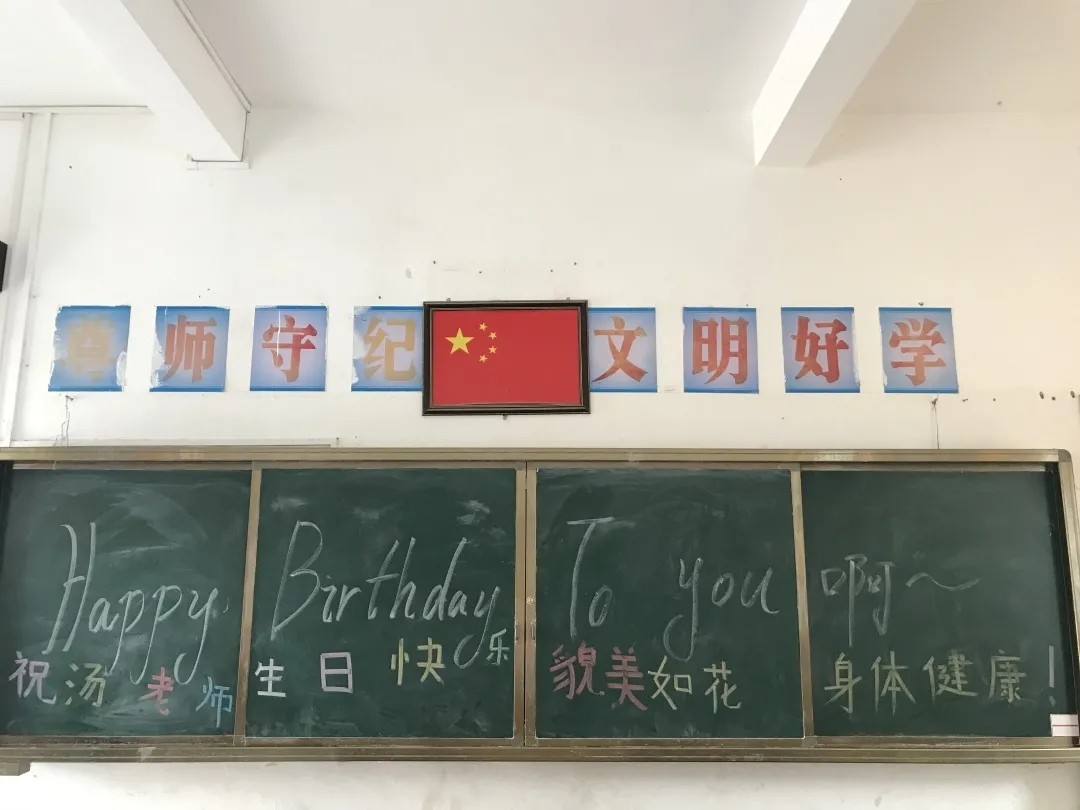 尊师守纪 文明好学
Happy Birthday To you 啊～
祝汤老师生日快乐 貌美如花 身体健康！